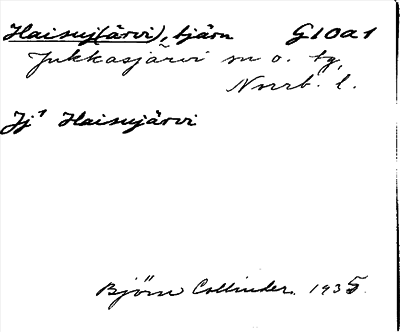 Haisuj(ärvi), tjärn G10a1
Jukkasjärvi sn o. tg,
Norrb. l.
Jj¹ Haisujärvi
Björn Collinder. 1935